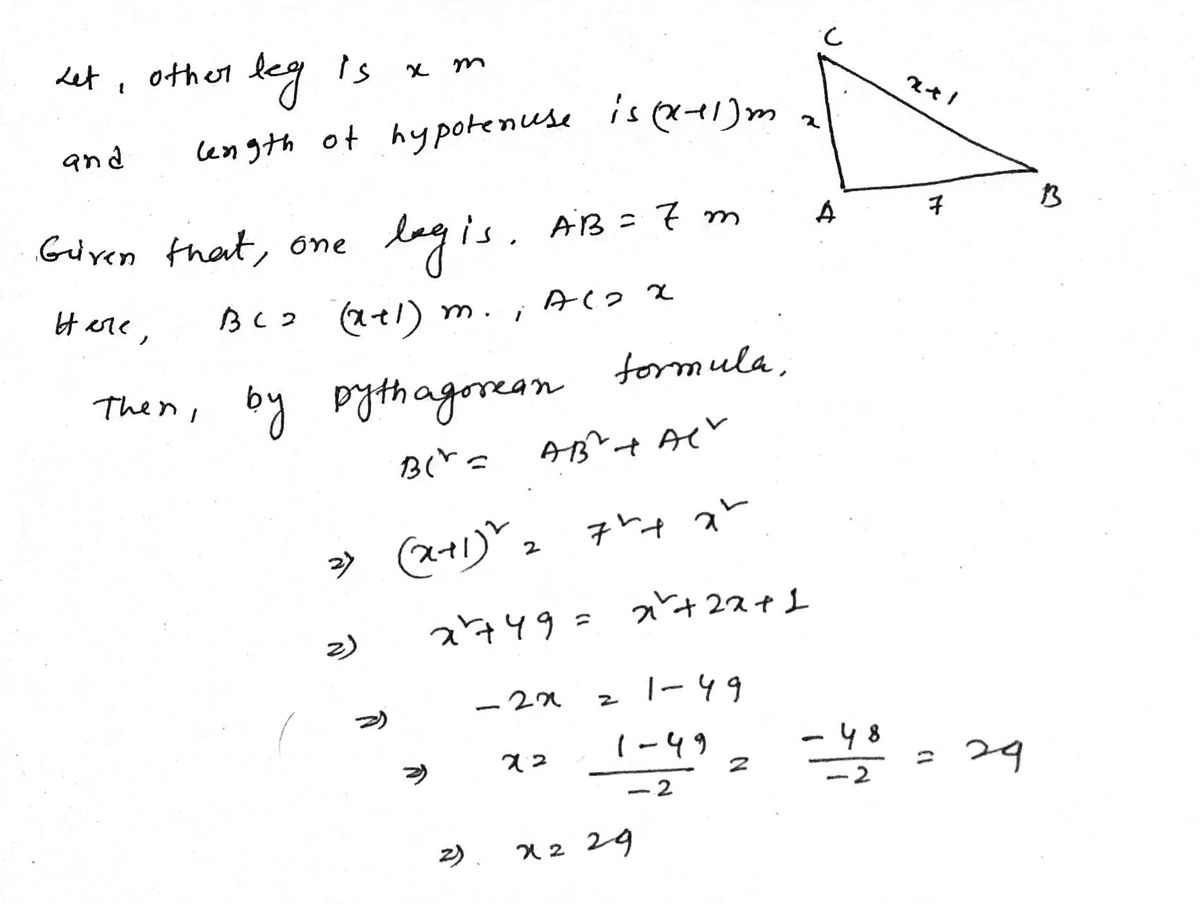 Let, other leg is x m
and length of hypotenuse is (x+1) m
C
x+1
x
A
7
B
Given that, one leg is. AB = 7 m
Here, BC = (x+1) m. , AC = x
Then, by pythagorean formula,
BC² = AB² + AC²
⇒ (x+1)² = 7² + x²
⇒ x² + 49 = x² + 2x + 1
⇒ -2x = 1-49
⇒ x = (1-49)/(-2) = (-48)/(-2) = 29
⇒ x = 29